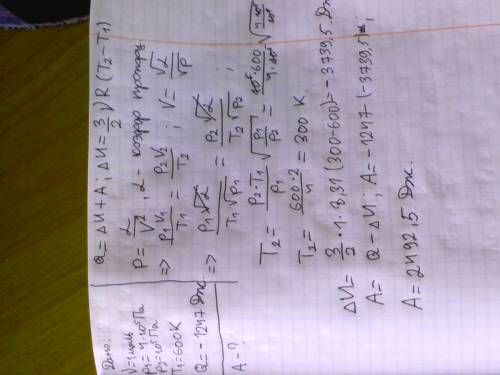 Дано:
ν=1 моль
P₁=4·10⁵Па
P₂=10⁵Па
T₁=600K
Q=-1247 Дж
A-?
Q=ΔU+A; ΔU=3/2 νR(T₂-T₁)
P=α/V², α-коэфф пропорц.
=> P₁V₁/T₁ = P₂V₂/T₂ ; V=√α/√P
=> P₁√α/T₁√P₁ = P₂√α/T₂√P₂ ;
T₂= P₂·T₁/P₁ √P₁/P₂ = 10⁵·600/4·10⁵ √4·10⁵/10⁵
T₂= 600·2/4 = 300 K.
ΔU= 3/2 ·1·8,31(300-600)=-3739,5 Дж
A= Q-ΔU; A=-1247-(-3739,5);
A=2492,5 Дж.